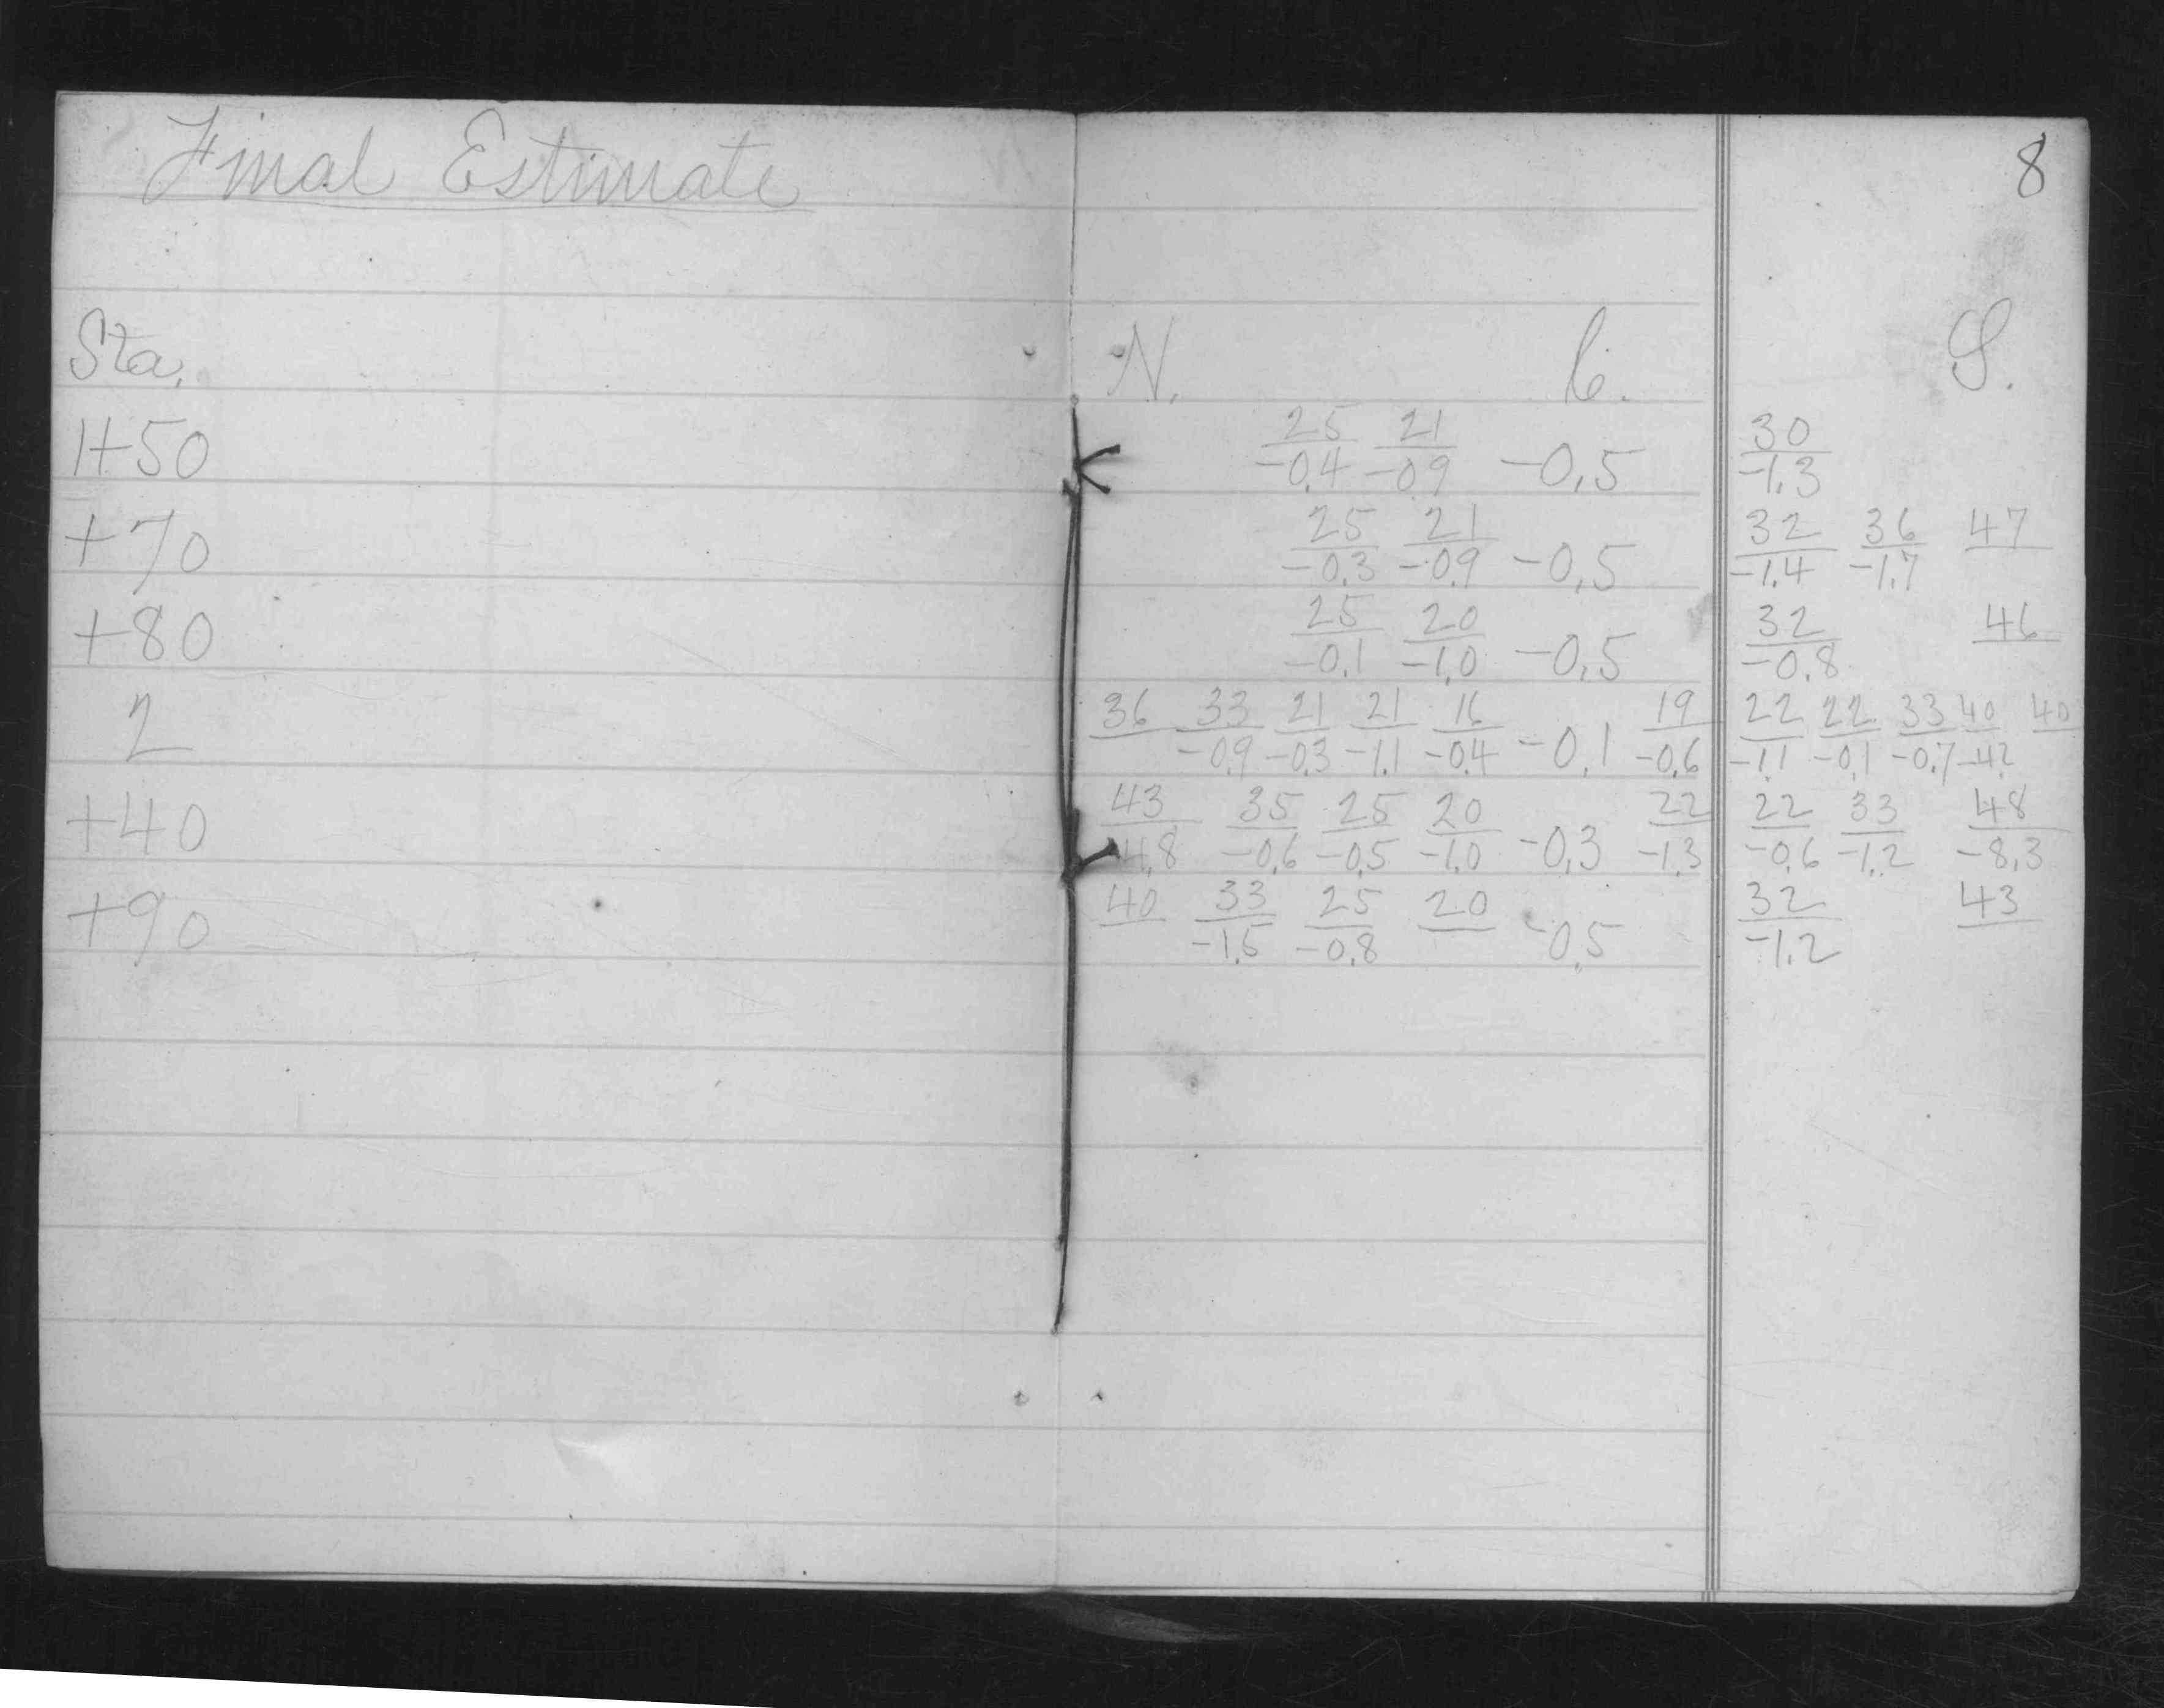 8
Final Estimate
Sta. N. C. S.
1+50 25/-0.4 21/-0.9 -0.5 30/-1.3
+70 25/-0.3 21/-0.9 -0.5 32/-1.4 36/-1.7 47
+80 25/-0.1 20/-1.0 -0.5 32/-0.8 46
2 36 33/-0.9 21/-0.3 21/-1.1 16/-0.4 -0.1 19/-0.6 22/-1.1 22/-0.1 33/-0.7 40/-4.2 40
+40 43/ 35/-0.6 25/-0.5 20/-1.0 -0.3 22/-1.3 22/-0.6 33/-1.2 48/-8.3
+90 40 33/-1.5 25/-0.8 20 -0.5 32/-1.2 43